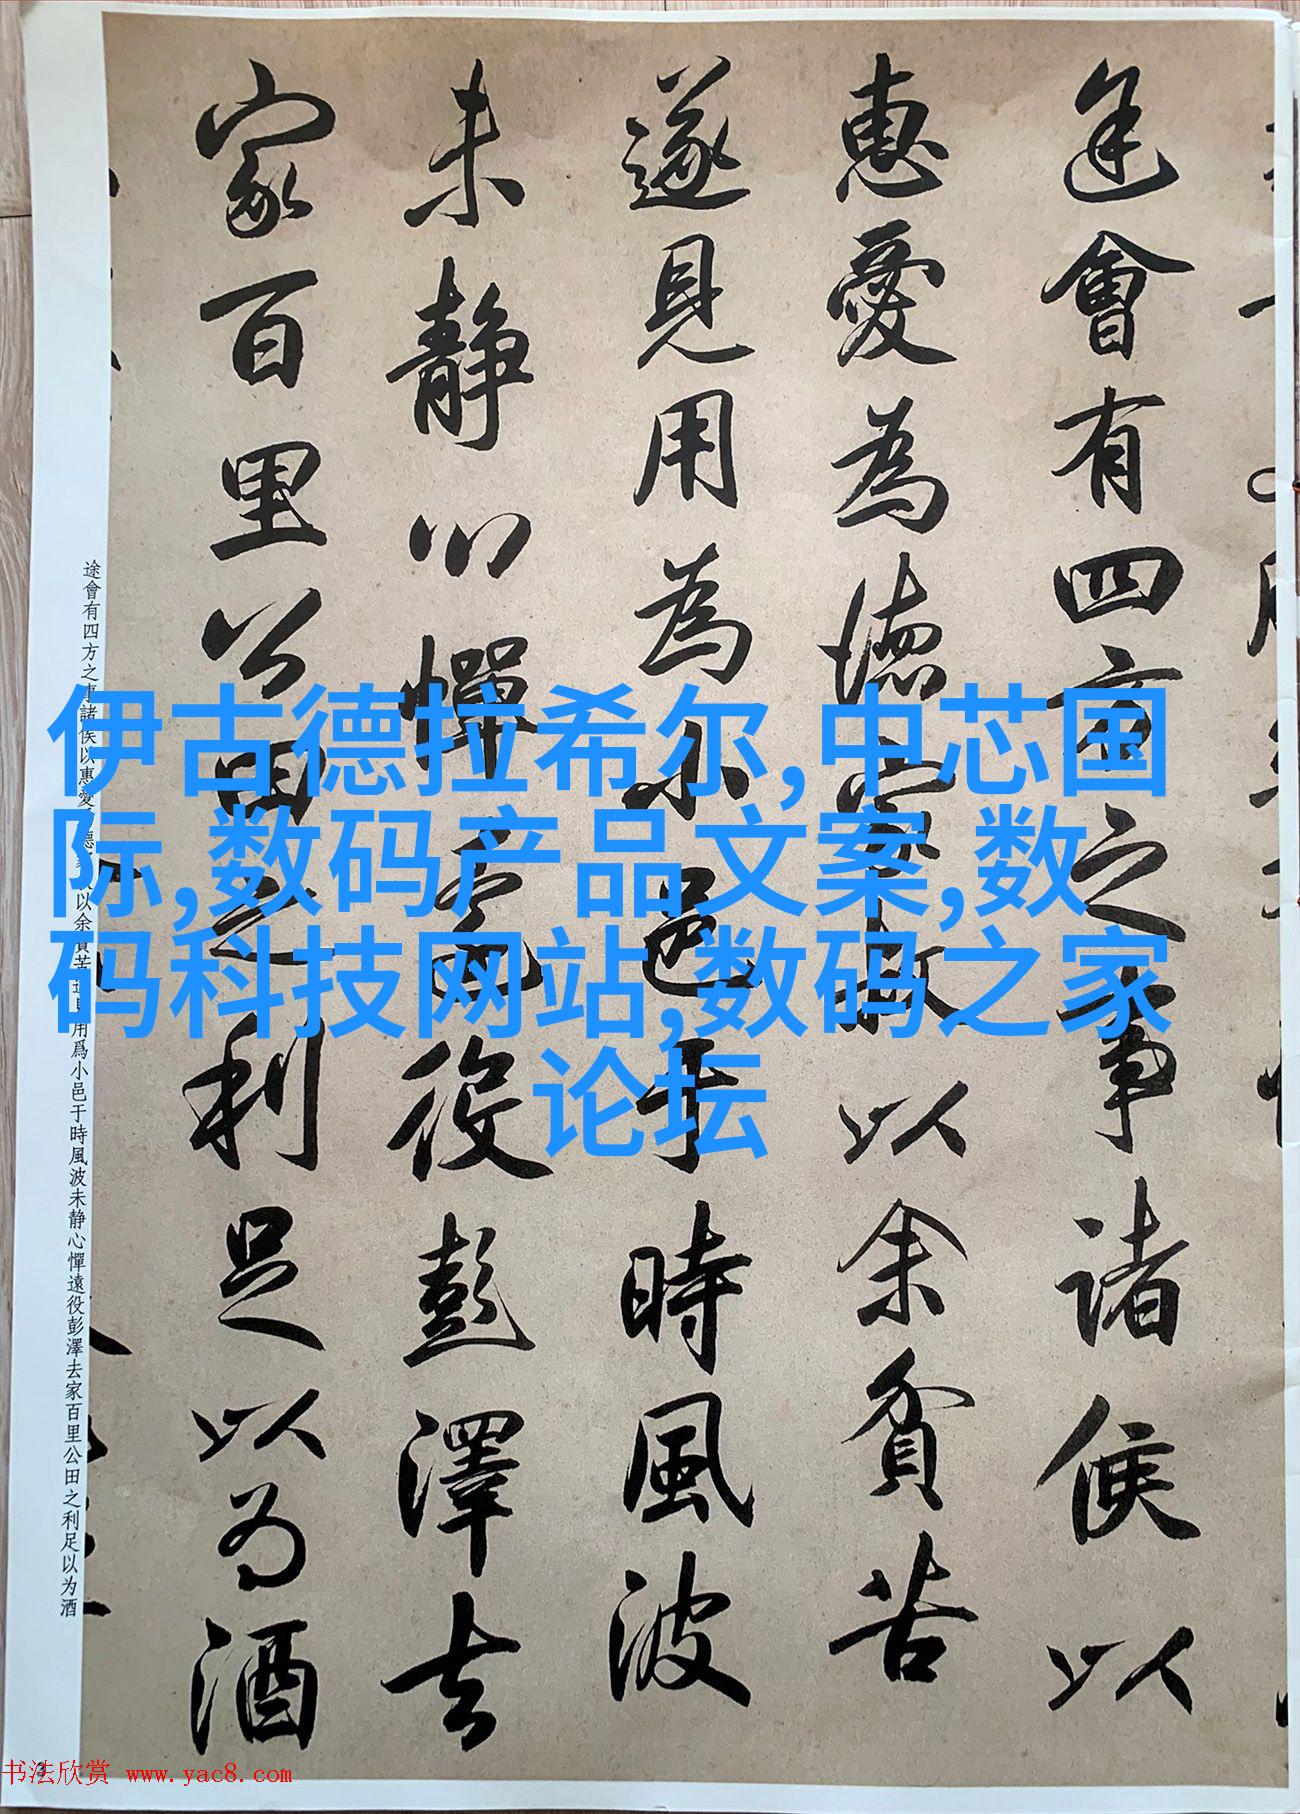 途會有四方之事諸侯以
惠愛為德家叔以余貧苦
遂見用為小邑于時風波
未靜心憚遠役彭澤去
家百里公田之利足以為酒
途會有四方之事諸侯以惠愛德以余貧苦用爲小邑于時風波未静心憚遠役彭澤去家百里公田之利足以为酒
伊古德拉希尔,中芯国
际,数码产品文案,数
码科技网站,数码之家
论坛
书法欣赏 www.yac8.com